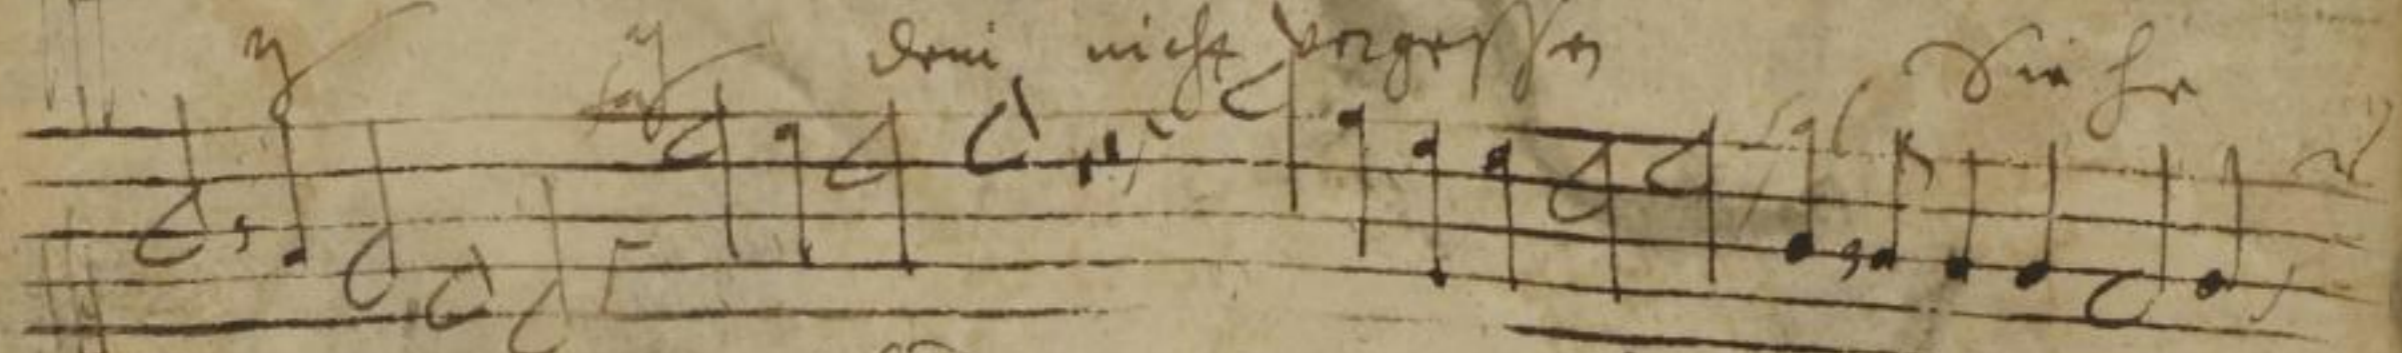 y y dein nicht vergessen Siehe